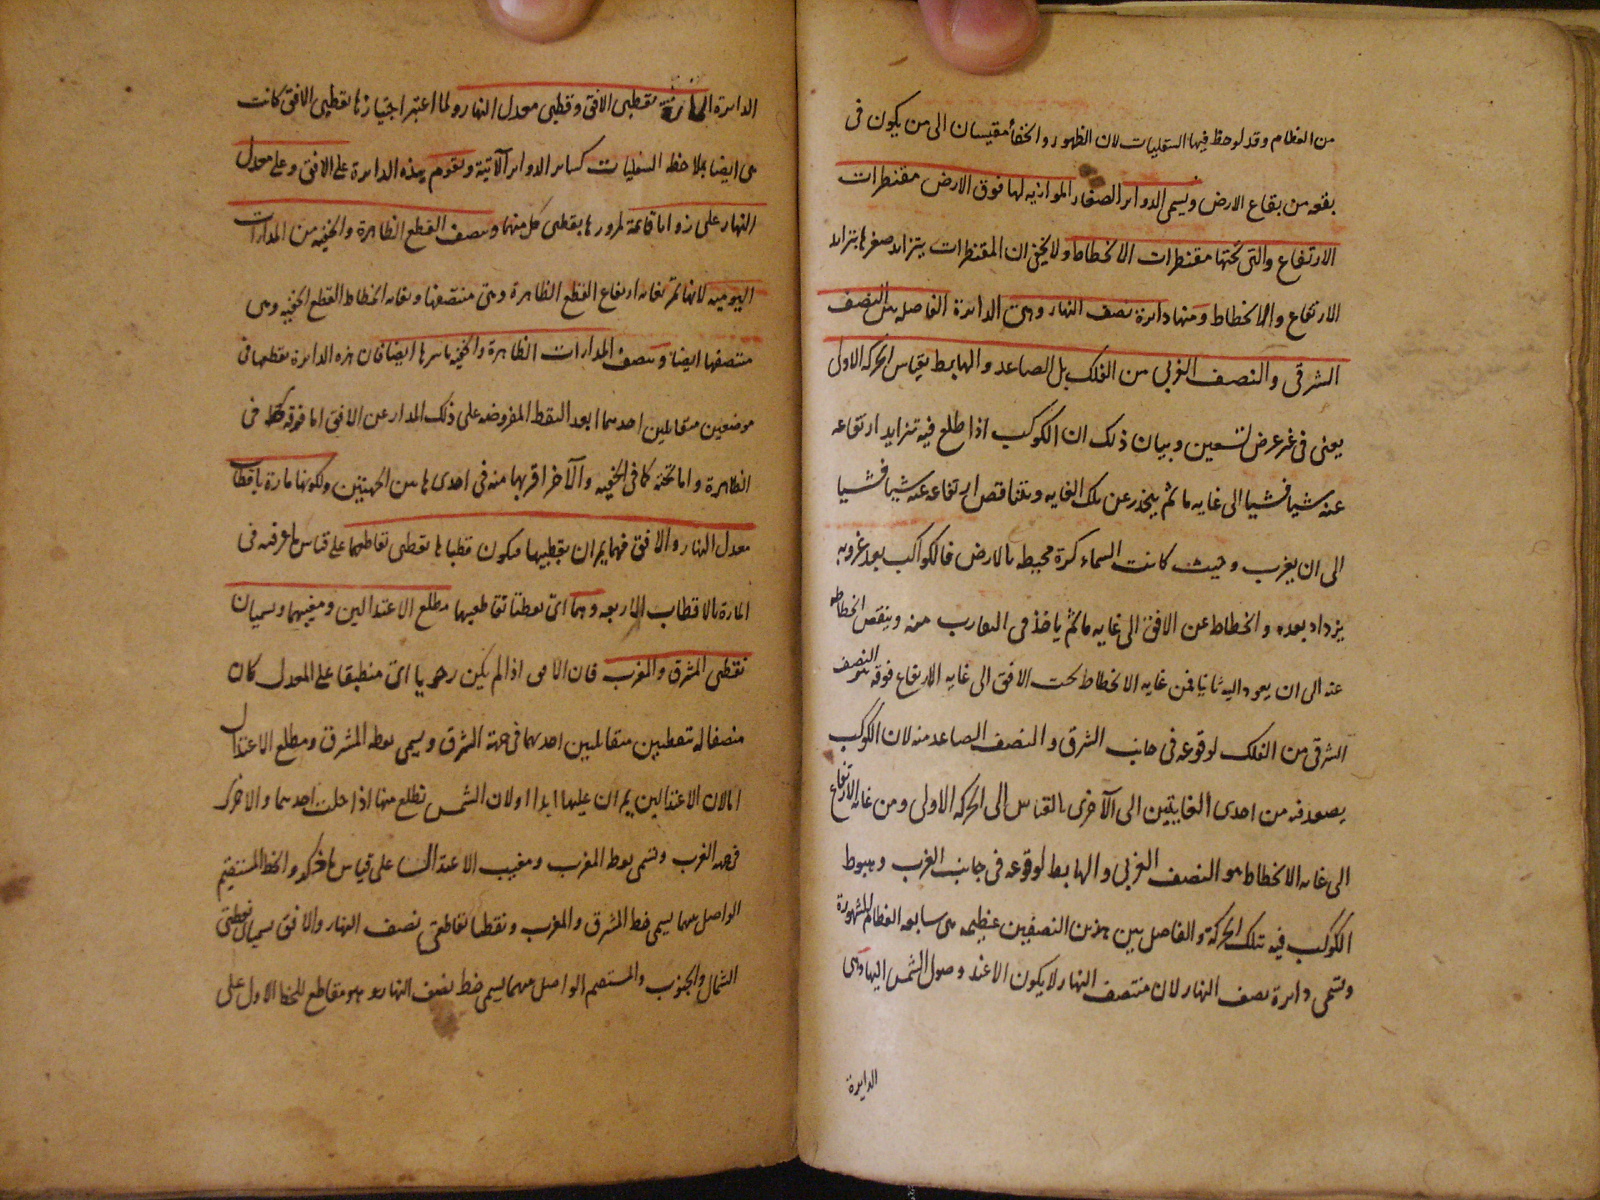 من العظام وقد لوحظ فيها السفليات لان الظهور والخفأ مقيسان الى من يكون فى
بقعه من بقاع الارض ويسمى الدواير الصغار الموازيه لها فوق الارض مقنطرات
الارتفاع والتى تحتها مقنطرات الانحطاط ولا يخفى ان المقنطرات يتزايد صغرها بتزايد
الارتفاع والانحطاط ومنها دايرة نصف النهار وهى الدايرة الفاصله بين النصف
الشرقى والنصف الغربى من الفلك بل الصاعد والهابط بقياس الحركه الاولى
يعنى فى غير عرض تسعين وبيان ذلك ان الكوكب اذا طلع فيه تزايد ارتفاعه
عنه شيا فشيا الى غايه ما ثم ينحدر عن تلك الغايه ويتناقص ارتفاعه عنه شيا فشيا
الى ان يغرب وحيث كانت السماء كرة محيطه بالارض فالكواكب بعد غروبه
يزداد بعده وانحطاط عن الافق الى غايه ما ثم ياخذ فى التقارب منه وينقص انحطاطه
عنه الى ان يعود اليه ثانيا فمن غايه الانحطاط تحت الافق الى غايه الارتفاع فوقه هو النصف
الشرقى من الفلك لوقوعه فى جانب الشرق والنصف الصاعد منه لان الكوكب
يصعد فيه من احدى الغايتين الى الآخرى بالقياس الى الحركه الاولى ومن غايه الارتفاع
الى غايه الانحطاط هو النصف الغربى والهابط لوقوعه فى جانب الغرب وهبوط
الكوكب فيه بتلك الحركة والفاصل بين هذين النصفين عظيمه هى سابعه العظام المشهورة
وتسمى دايرة نصف النهار لان منتصف النهار لا يكون الا عند وصول الشمس اليها وهى
الدايرة
الدايرة المارة بقطبى الافق وقطبى معدل النهار ولما اعتبر اجتيازها بقطبى الافق كانت
هى ايضا بملاحظه السفليات كساير الدواير الآتية وتقوم هذه الدايرة على الافق وعلى معدل
النهار على زوايا قائمة لمرورها بقطبى كل منهما وتنصف القطع الظاهرة والخفيه من المدارات
اليوميه لانها تمر بغايه ارتفاع القطع الظاهرة وهى منتصفها وبغايه انحطاط القطع الخفيه وهى
منتصفها ايضا وتنصف المدارات الظاهرة والخفيه باسرها ايضا فان هذه الدايرة تقطعها فى
موضعين متقابلين احدهما ابعد النقط المفروضه على ذلك المدار عن الافق اما فوقه كما فى
الظاهرة واما تحته كما فى الخفيه والآخر اقربها منه فى احدى هاتين الجهتين ولكونها مارة باقطاب
معدل النهار والافق فهما يمران بقطبيها فيكون قطباها نقطتى تقاطعهما على قياس ما عرفته فى
المارة بالاقطاب الاربعه وهما اى نقطتا تقاطعهما مطلع الاعتدالين ومغيبهما ويسميان
نقطتى المشرق والمغرب فان الافق اذا لم يكن رحويا اى منطبقا على المعدل كان
منصفا له بنقطتين متقابلتين احديهما فى جهة الشرق ويسمى نقطه المشرق ومطلع الاعتدال
امالان الاعتدالين يمران عليها ابدا اولان الشمس تطلع منها اذا حلت احدهما والاخرى
فى جهه الغرب وتسمى نقطه المغرب ومغيب الاعتدال على قياس ما ذكر والخط المستقيم
الواصل بينهما يسمى خط المشرق والمغرب ونقطتا تقاطعى نصف النهار والافق يسميان نقطتى
الشمال والجنوب والمستقيم الواصل بينهما يسمى خط نصف النهار وهو مقاطع للخط الاول على